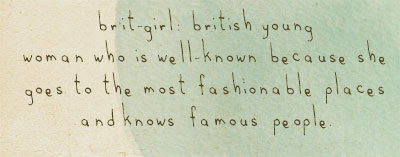 brit-girl: british young
woman who is well-known because she
goes to the most fashionable places
and knows famous people.